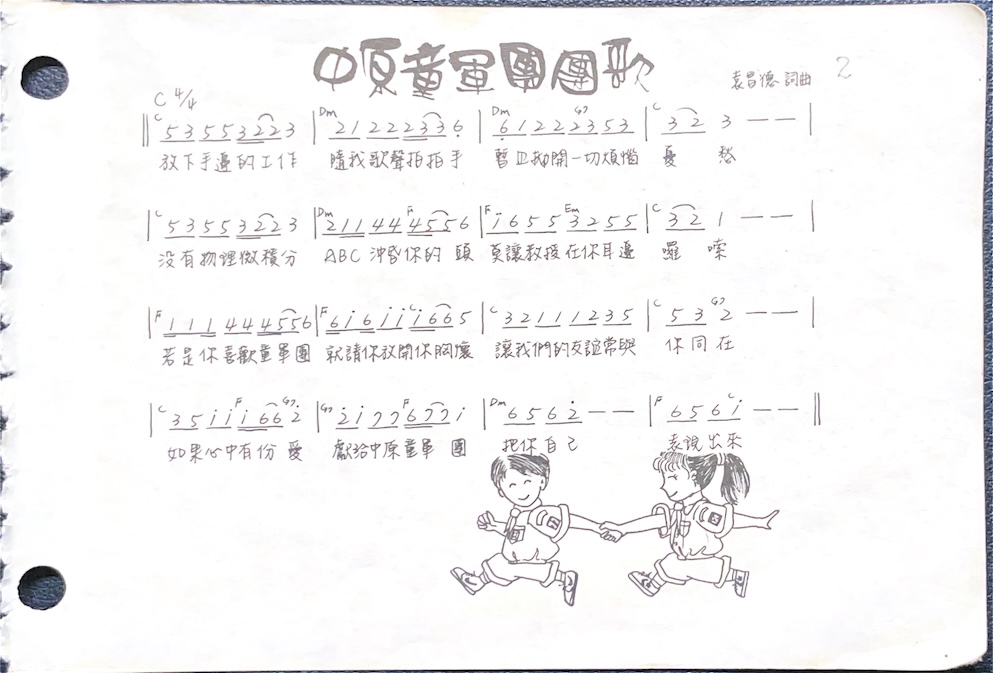 中原童軍團團歌
袁昌德 詞曲 2
C 4/4
‖ C 5 3 5 5 3 2 2 3 | Dm 2 1 2 2 2 3 3 6̣ | Dm 6̣ 1 2 2 2 G7 3 5 3 | C 3 2 3 — — |
放下手邊的工作 隨我歌聲拍拍手 暫且拋開一切煩惱 憂 愁
| C 5 3 5 5 3 2 2 3 | Dm 2 1 1 4 4 F 4 5 5 6 | F i 6 5 5 Em 3 2 5 5 | C 3 2 1 — — |
沒有物理微積分 ABC 沖昏你的 頭 莫讓教授在你耳邊 囉 嗦
| F 1 1 1 4 4 4 5 5 6 | F 6 i 6 i i C i 6 6 5 | C 3 2 1 1 1 2 3 5 | C 5 3 G7 2 — — |
若是你喜歡童軍團 就請你放開你胸懷 讓我們的友誼常與 你同在
| C 3 5 i i F i 6 6 G7 2̇ | G7 2̇ i 7 7 F 6 7 7 i | Dm 6 5 6 2̇ — — | F 6 5 6 C i — — ‖
如果心中有份 愛 獻給中原童軍 團 把你自己 表現出來